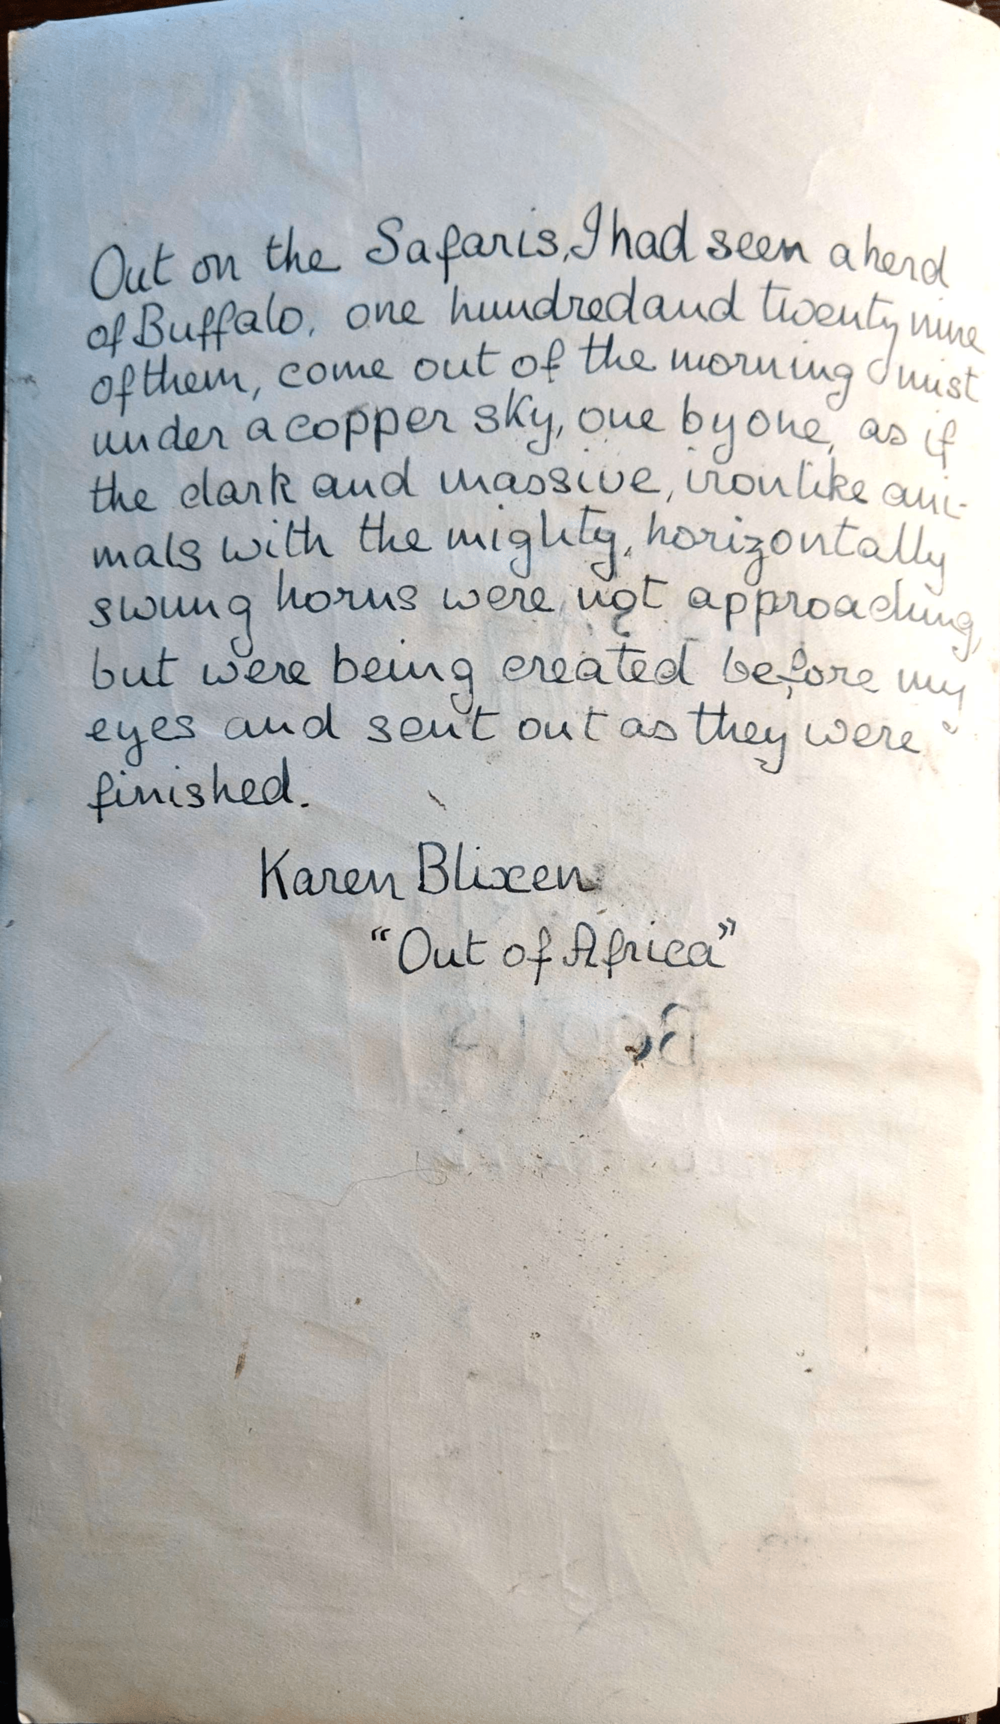 Out on the Safaris, I had seen a herd
of Buffalo, one hundred and twenty nine
of them, come out of the morning mist
under a copper sky, one by one, as if
the dark and massive, iron like ani-
mals with the mighty, horizontally
swung horns were not approaching,
but were being created before my
eyes and sent out as they were
finished.
Karen Blixen
"Out of Africa"